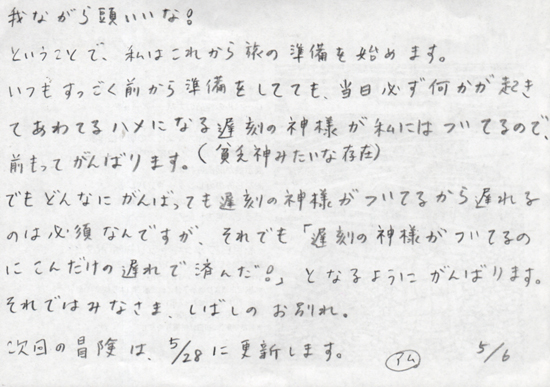 我ながら頭いいな!
ということで、私はこれから旅の準備を始めます。
いつもすっごく前から準備をしてても、当日必ず何かが起き
てあわてるハメになる遅刻の神様が私にはついてるので、
前もってがんばります。(貧乏神みたいな存在)
でもどんなにがんばっても遅刻の神様がついてるから遅れる
のは必須なんですが、それでも「遅刻の神様がついてるの
にこんだけの遅れで済んだ!」となるようにがんばります。
それではみなさま、しばしのお別れ。
次回の冒険は、5/28に更新します。 アム 5/6